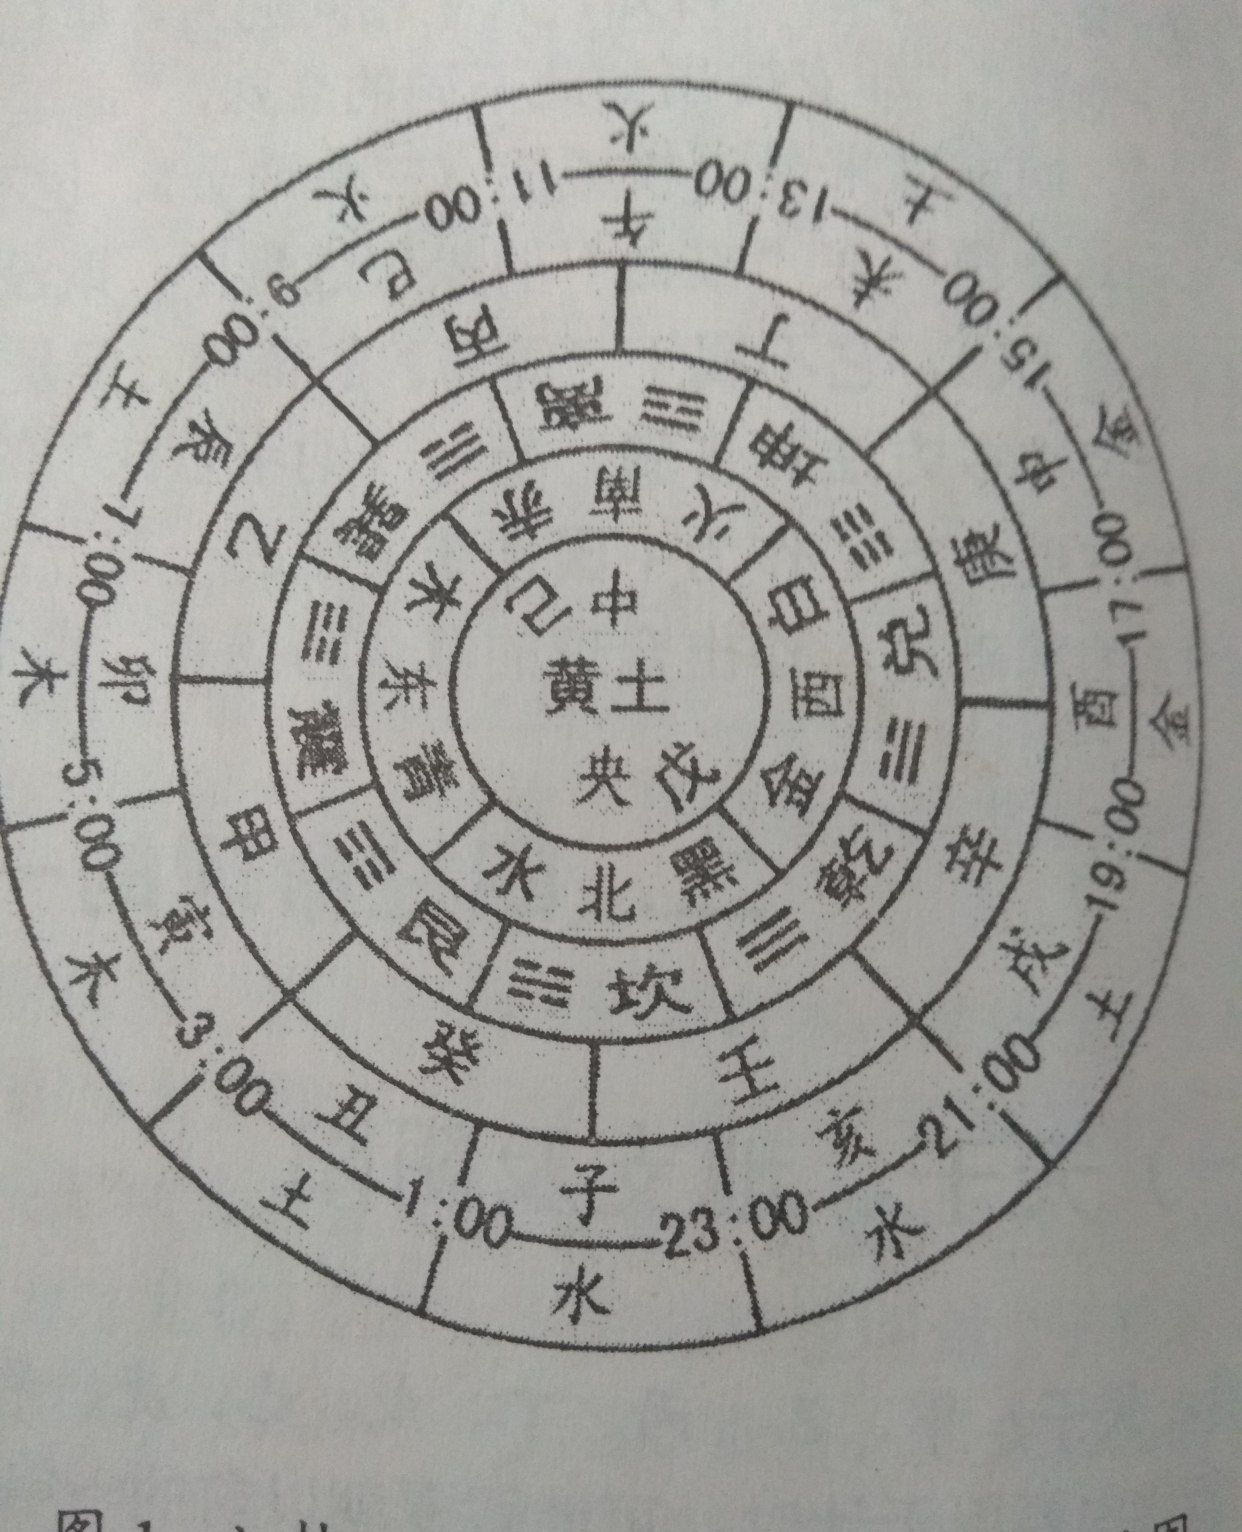 中
黄土
央
己
戊
赤 南 火
白 西 金
黑 北 水
青 东 木
离
坤
兑
乾
坎
艮
震
巽
丙
丁
庚
辛
壬
癸
甲
乙
午
未
申
酉
戌
亥
子
丑
寅
卯
辰
巳
11:00
13:00
15:00
17:00
19:00
21:00
23:00
1:00
3:00
5:00
7:00
9:00
火
土
金
金
土
水
水
土
木
木
土
火
图1